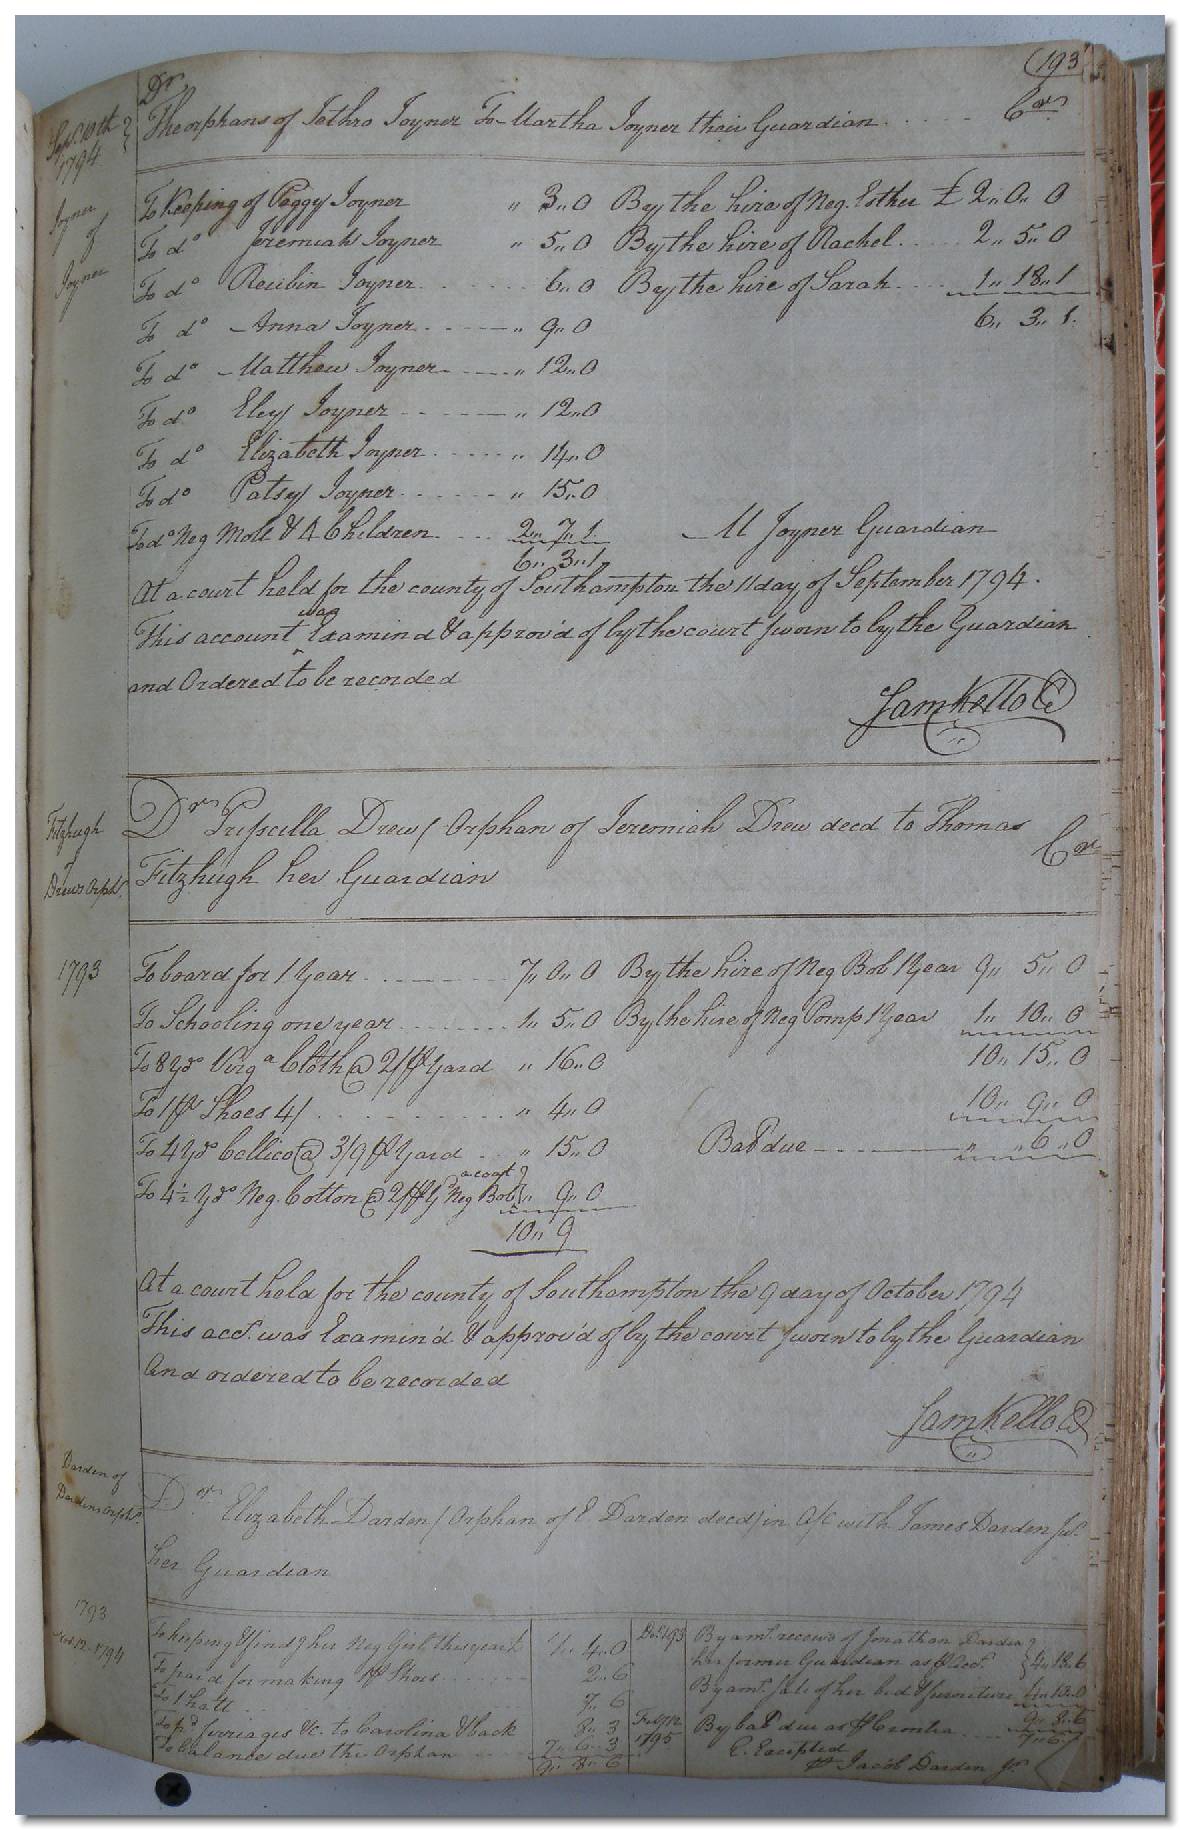 (193
Dr
Sep. 10th 1794
The orphans of Jethro Joyner To Martha Joyner their Guardian Cr
Joyner of Joyner
To Keeping of Peggy Joyner " 3,,0 By the hire of Neg. Esther £ 2,,0,,0
To do Jeremiah Joyner " 5,,0 By the hire of Rachel 2,,5,,0
To do Reubin Joyner 6,,0 By the hire of Sarah 1,,18,,1
To do Anna Joyner " 9,,0 6,,3,,1
To do Matthew Joyner " 12,,0
To do Eley Joyner " 12,,0
To do Elizabeth Joyner " 14,,0
To do Patsey Joyner " 15,,0
To do Neg Moll & Children 2,,7,,1 M Joyner Guardian
6,,3,,1
At a court held for the county of Southampton the 11 day of September 1794.
This account was Examind & approv'd of by the court sworn to by the Guardian
and Ordered to be recorded
Sam Kello
Fitzhugh of Drews Orph.
Dr Priscilla Drew / Orphan of Jeremiah Drew decd to Thomas
Fitzhugh her Guardian Cr
1793 To board for 1 Year 7,,0,,0 By the hire of Neg Bob 1 Year 9,,5,,0
To Schooling one year 1,,5,,0 By the hire of Neg Pomp 1 Year 1,,10,,0
To 8 Yds Virga Cloth @ 2/ ℔ Yard " 16,,0 10,,15,,0
To 1 pr Shoes 4/ " 4,,0 10,,9,,0
To 4 Yds Callico @ 3/9 ℔ Yard " 15,,0 Bal due " ,,6,,0
To 4½ Yds Neg. Cotton @ 2/ ℔ Y Neg Bob a coat " 9,,0
10,,9
At a court held for the county of Southampton the 9 day of October 1794
This acct. was Examin'd & approv'd of by the court sworn to by the Guardian
And ordered to be recorded
Sam Kello
Darden of Dardens Orph.
Dr Elizabeth Darden / Orphan of E. Darden decd / in A/C with James Darden
her Guardian
1793
1794
To keeping & find g her Neg Girl this year 4,,0 By amt. receivd of Jonathan Darden
her former Guardian as ℔ Acct. 4,,18,,6
To paid for making pr Shoes 2,,6
To 1 hatt 7,,6 By amt. Sale of her bed & furniture 4,,10,,0
9,,8,,6
To pd ferriages &c. to Carolina & back 8,,3 1795 By bal due as ℔ Contra 7,,6,,3
To balance due the Orphan 7,,6,,3 E. Excepted
9,,8,,6 ℔ Jacob Darden Jr.